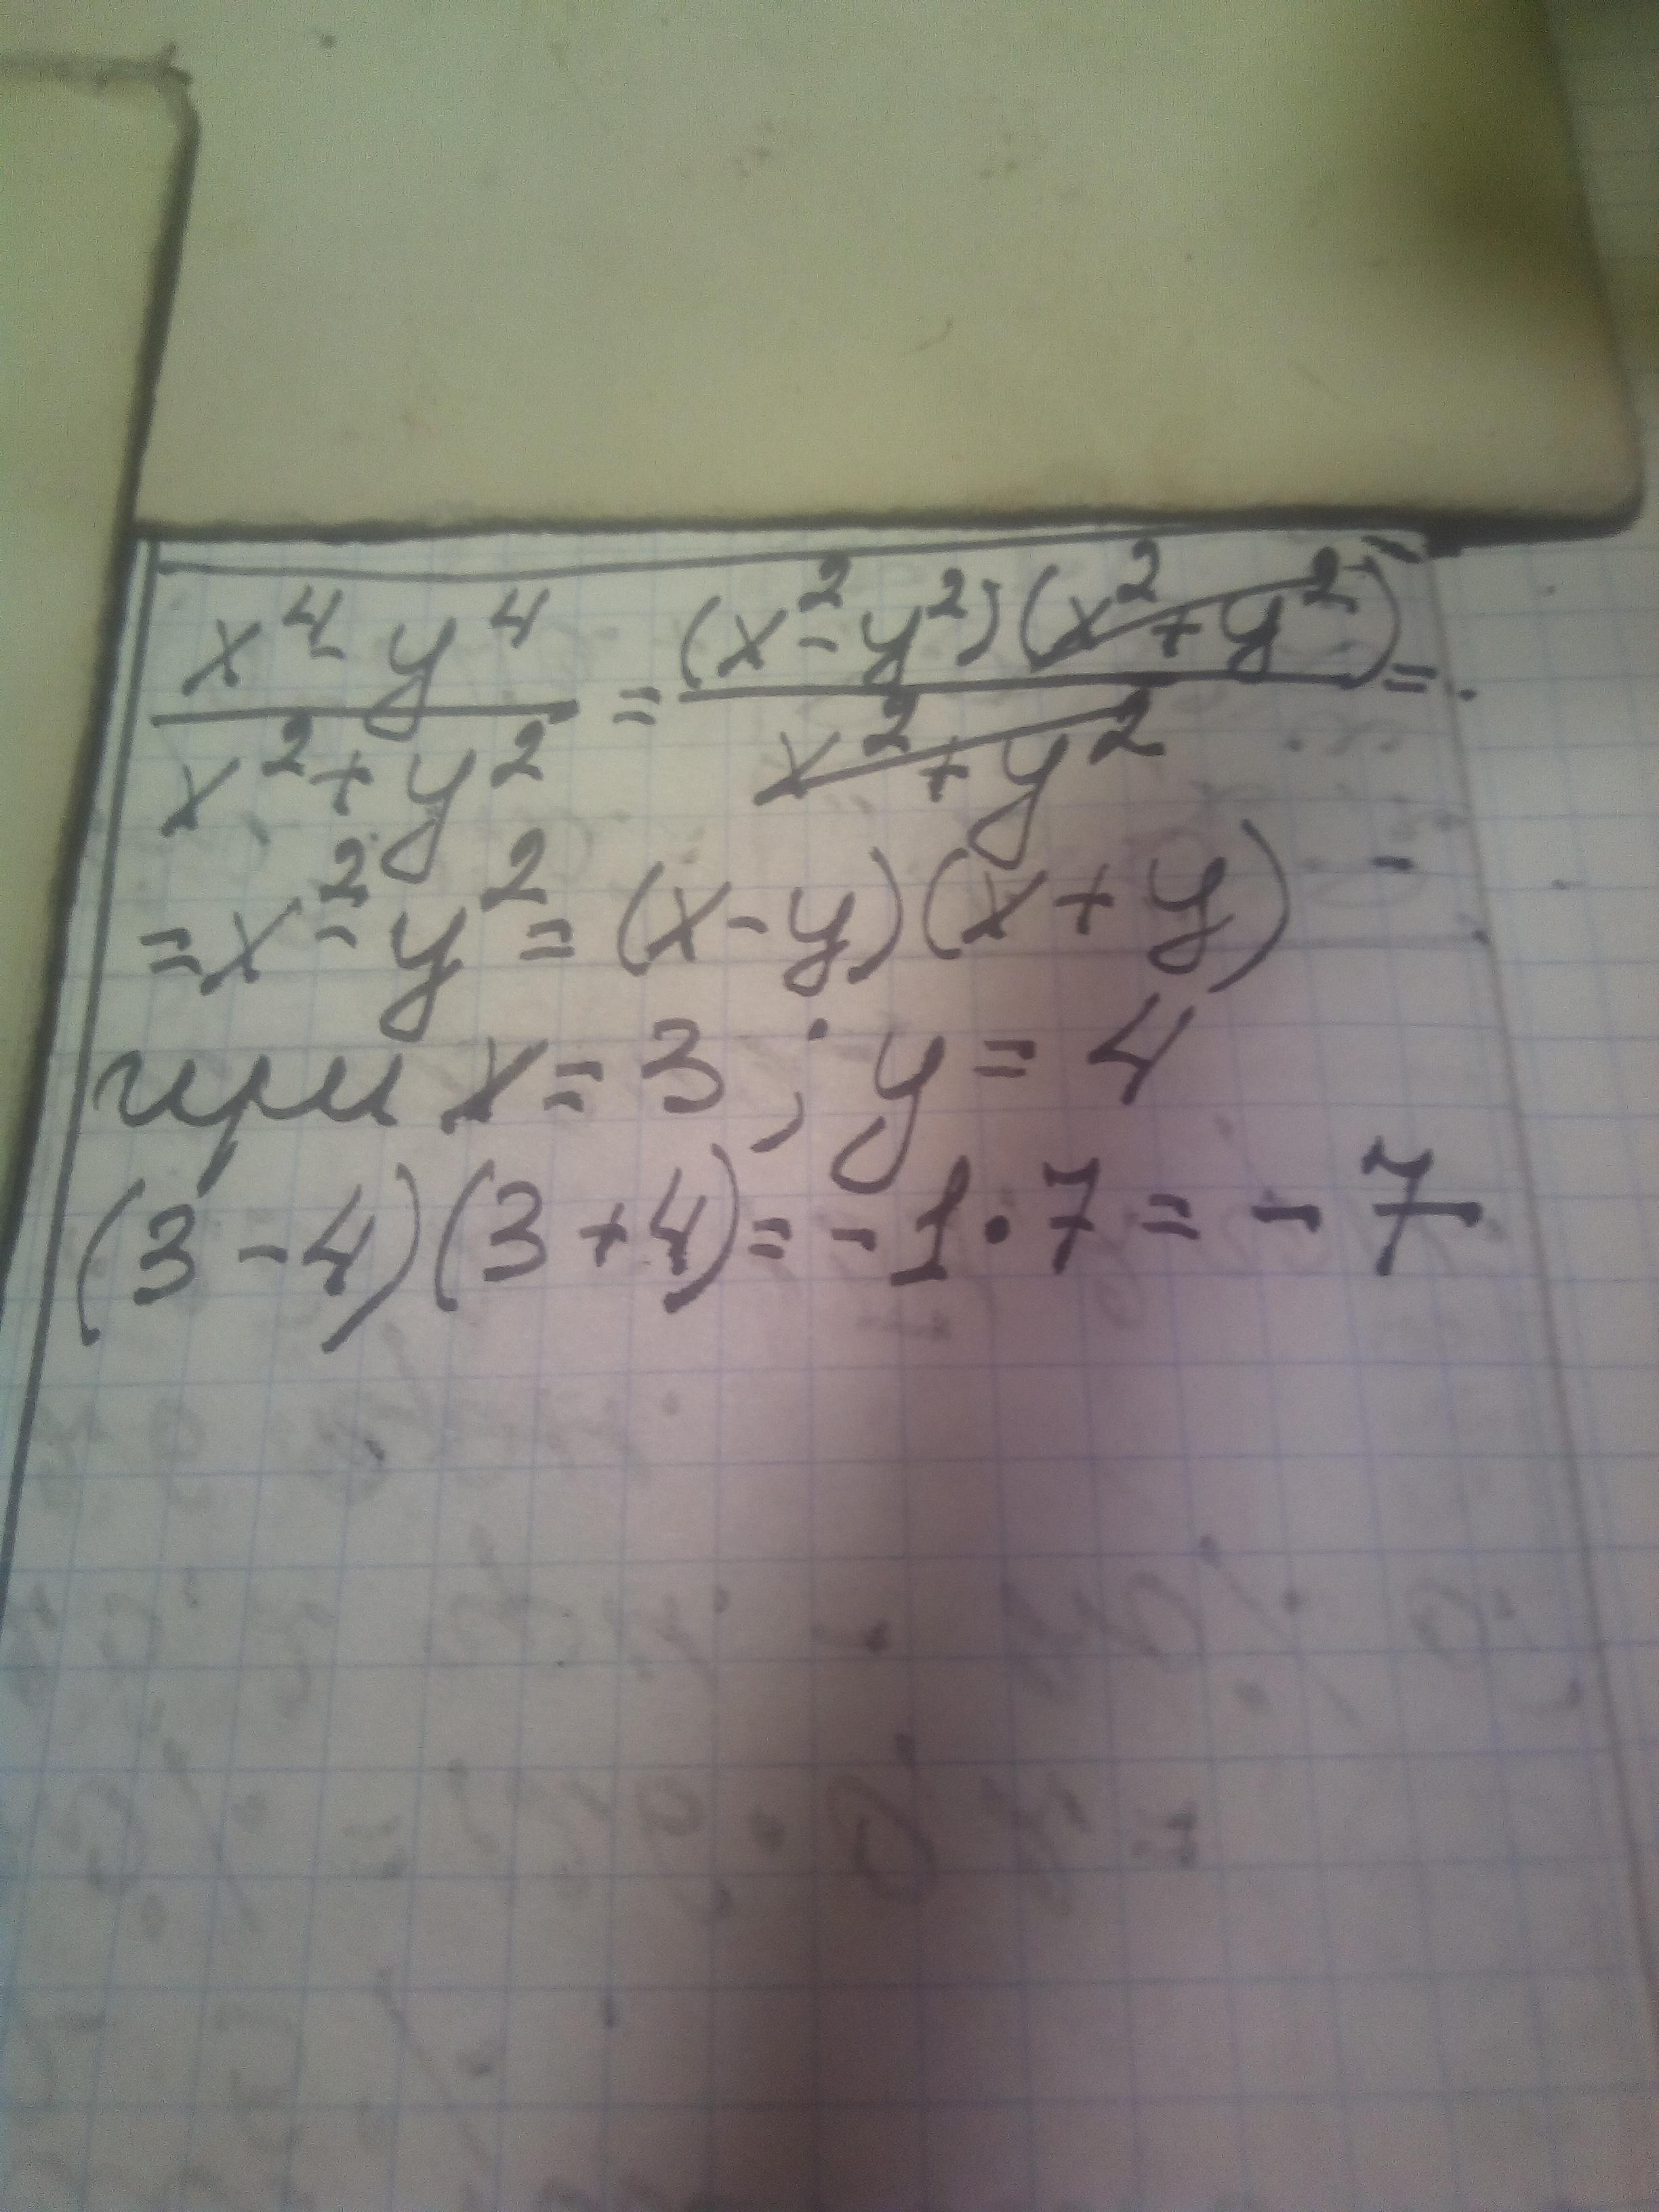 x⁴ - y⁴ / x² + y² = (x² - y²)(x² + y²) / x² + y² =
= x² - y² = (x - y)(x + y)
при x = 3 ; y = 4
(3 - 4)(3 + 4) = - 1 · 7 = - 7